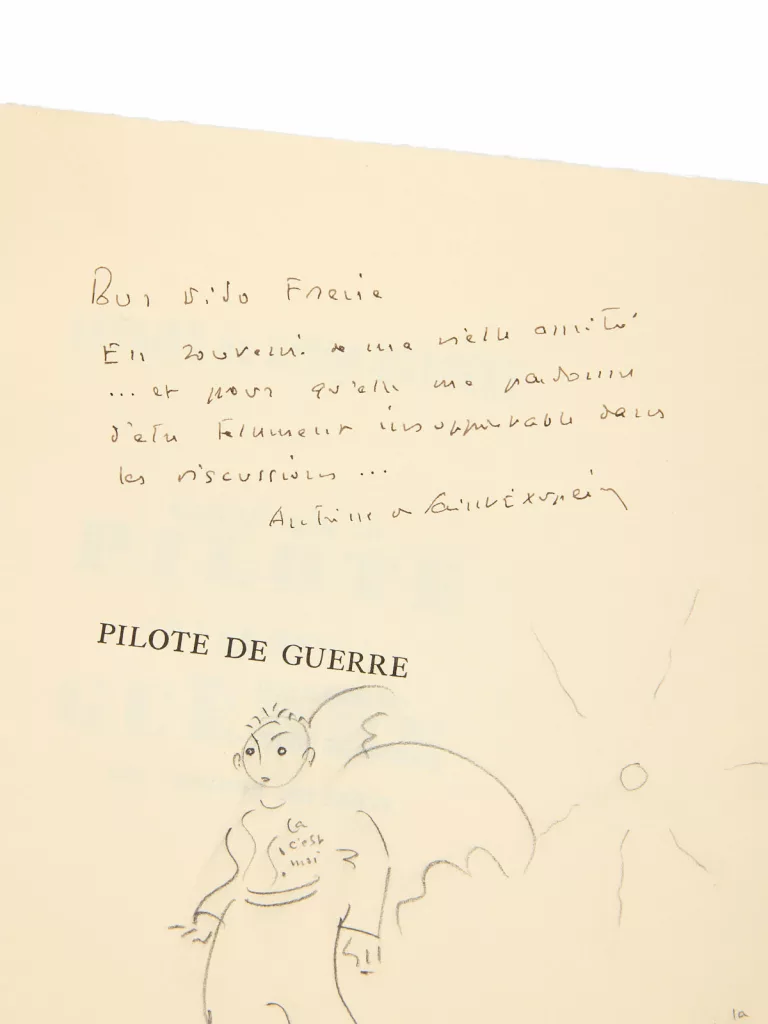 Pour
En souvenir de ma vieille amitié
... et pour qu'elle me pardonne
d'être tellement insupportable dans
les discussions ...
Antoine de Saint Exupéry
PILOTE DE GUERRE
Ça
c'est
moi
la